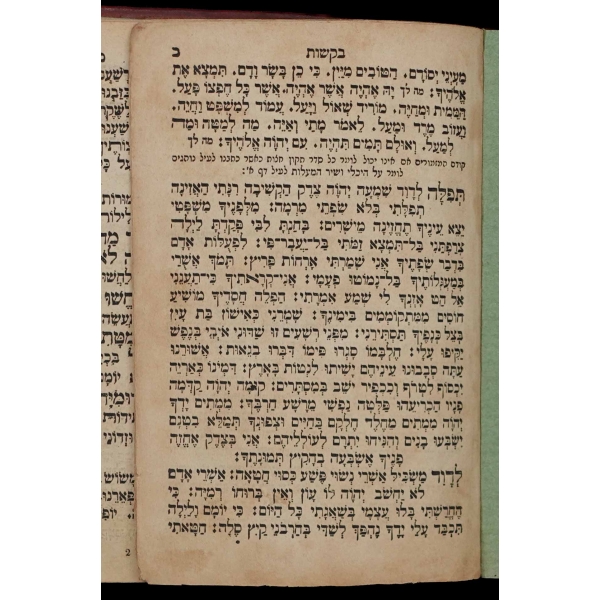 בקשות
כ
מֵעֵינֵי יְסוֹדָם. הַטּוֹבִים מִיָּיִן. כִּי כֵן בָּשָׂר וָדָם. תִּמְצָא אֶת
אֱלֹהֶיךָ: מה לך יָהּ אֶהְיֶה אֲשֶׁר אֶהְיֶה. אֲשֶׁר כָּל חֶפְצוֹ פָּעַל.
הַמֵּמִית וּמְחַיֶּה. מוֹרִיד שְׁאוֹל וַיָּעַל. עֲמוֹד לַמִּשְׁפָּט וִחְיֵה.
וַעֲזוֹב מֶרֶד וּמַעַל. לֵאמֹר מָתַי וְאַיֵּה. מַה לְּמַטָּה וּמַה
לְמָעַל. וְאוּלָם תָּמִים תִּהְיֶה. עִם יְהֹוָה אֱלֹהֶיךָ: מה לך
קודם המזמורים אם אינו יכול לומר כל סדר תקון חצות כאשר כתבנו לעיל
לומר על היכלי ושיר המעלות לעיל דף א':
תְּפִלָּה לְדָוִד שִׁמְעָה יְהֹוָה צֶדֶק הַקְשִׁיבָה רִנָּתִי הַאֲזִינָה
תְפִלָּתִי בְּלֹא שִׂפְתֵי מִרְמָה: מִלְּפָנֶיךָ מִשְׁפָּטִי
יֵצֵא עֵינֶיךָ תֶּחֱזֶינָה מֵישָׁרִים: בָּחַנְתָּ לִבִּי פָּקַדְתָּ לַּיְלָה
צְרַפְתַּנִי בַל־תִּמְצָא זַמֹּתִי בַּל־יַעֲבָר־פִּי: לִפְעֻלּוֹת אָדָם
בִּדְבַר שְׂפָתֶיךָ אֲנִי שָׁמַרְתִּי אָרְחוֹת פָּרִיץ: תָּמֹךְ אֲשֻׁרַי
בְּמַעְגְּלוֹתֶיךָ בַּל־נָמוֹטּוּ פְעָמָי: אֲנִי־קְרָאתִיךָ כִּי־תַעֲנֵנִי
אֵל הַט אָזְנְךָ לִי שְׁמַע אִמְרָתִי: הַפְלֵה חֲסָדֶיךָ מוֹשִׁיעַ
חוֹסִים מִמִּתְקוֹמְמִים בִּימִינֶךָ: שָׁמְרֵנִי כְּאִישׁוֹן בַּת עָיִן
בְּצֵל כְּנָפֶיךָ תַּסְתִּירֵנִי: מִפְּנֵי רְשָׁעִים זוּ שַׁדּוּנִי אֹיְבַי בְּנֶפֶשׁ
יַקִּיפוּ עָלָי: חֶלְבָּמוֹ סָגְרוּ פִּימוֹ דִּבְּרוּ בְגֵאוּת: אַשּׁוּרֵנוּ
עַתָּה סְבָבוּנוּ עֵינֵיהֶם יָשִׁיתוּ לִנְטוֹת בָּאָרֶץ: דִּמְיוֹנוֹ כְּאַרְיֵה
יִכְסוֹף לִטְרוֹף וְכִכְפִיר יֹשֵׁב בְּמִסְתָּרִים: קוּמָה יְהֹוָה קַדְּמָה
פָנָיו הַכְרִיעֵהוּ פַּלְּטָה נַפְשִׁי מֵרָשָׁע חַרְבֶּךָ: מִמְתִים יָדְךָ
יְהֹוָה מִמְתִים מֵחֶלֶד חֶלְקָם בַּחַיִּים וּצְפוּנְךָ תְּמַלֵּא בִטְנָם
יִשְׂבְּעוּ בָנִים וְהִנִּיחוּ יִתְרָם לְעוֹלְלֵיהֶם: אֲנִי בְּצֶדֶק אֶחֱזֶה
פָנֶיךָ אֶשְׂבְּעָה בְהָקִיץ תְּמוּנָתֶךָ:
לְדָוִד מַשְׂכִּיל אַשְׁרֵי נְשׂוּי פֶּשַׁע כְּסוּי חֲטָאָה: אַשְׁרֵי אָדָם
לֹא יַחְשֹׁב יְהֹוָה לוֹ עָוֹן וְאֵין בְּרוּחוֹ רְמִיָּה: כִּי
הֶחֱרַשְׁתִּי בָּלוּ עֲצָמָי בְּשַׁאֲגָתִי כָּל הַיּוֹם: כִּי יוֹמָם וָלַיְלָה
תִּכְבַּד עָלַי יָדֶךָ נֶהְפַּךְ לְשַׁדִּי בְּחַרְבֹנֵי קַיִץ סֶלָה: חַטָּאתִי
2